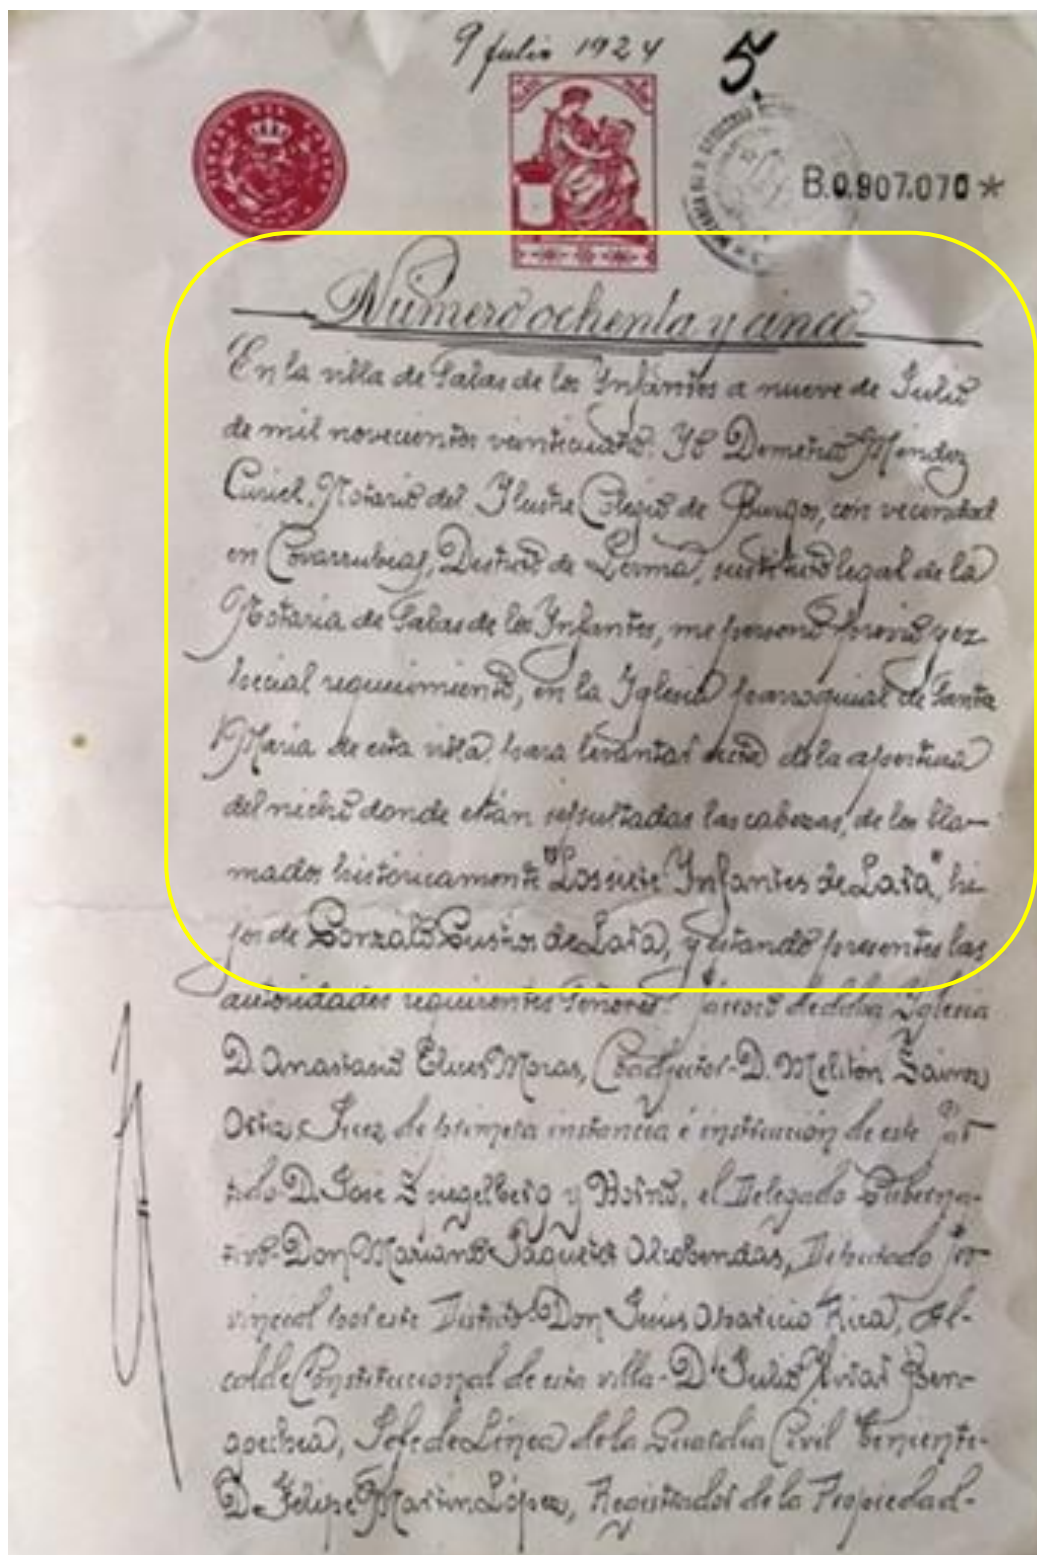 9 Julio 1924
5.
B.0.907.070 *
Número ochenta y cinco
En la villa de Salas de los Infantes a nueve de Julio
de mil novecientos veinticuatro. Yo Demetrio Méndez
Curiel, Notario del Ilustre Colegio de Burgos, con vecindad
en Covarrubias, Distrito de Lerma, sustituto legal de la
Notaria de Salas de los Infantes, me persono previo y es-
pecial requerimiento, en la Iglesia parroquial de Santa
Maria de esta villa, para levantar acta de la apertura
del nicho donde están sepultadas las cabezas, de los lla-
mados históricamente "Los siete Infantes de Lara", hi-
jos de Gonzalo Gustios de Lara, y estando presentes las
autoridades requirentes Señores: Párroco de dicha Iglesia
D. Anastasio Moras, Coadjutor- D. Melitón Sainz
Juez de primera instancia é instrucción de este Par-
tido- D. José y el Delegado Guberna-
tivo- Don Mariano Alcobendas, Diputado pro-
vincial por este Distrito- Don Aparicio Al-
calde Constitucional de esta villa- D. Julio Ben-
goechea, Jefe de Línea de la Guardia Civil Teniente-
D. Felipe Martin López, Registrador de la Propiedad-